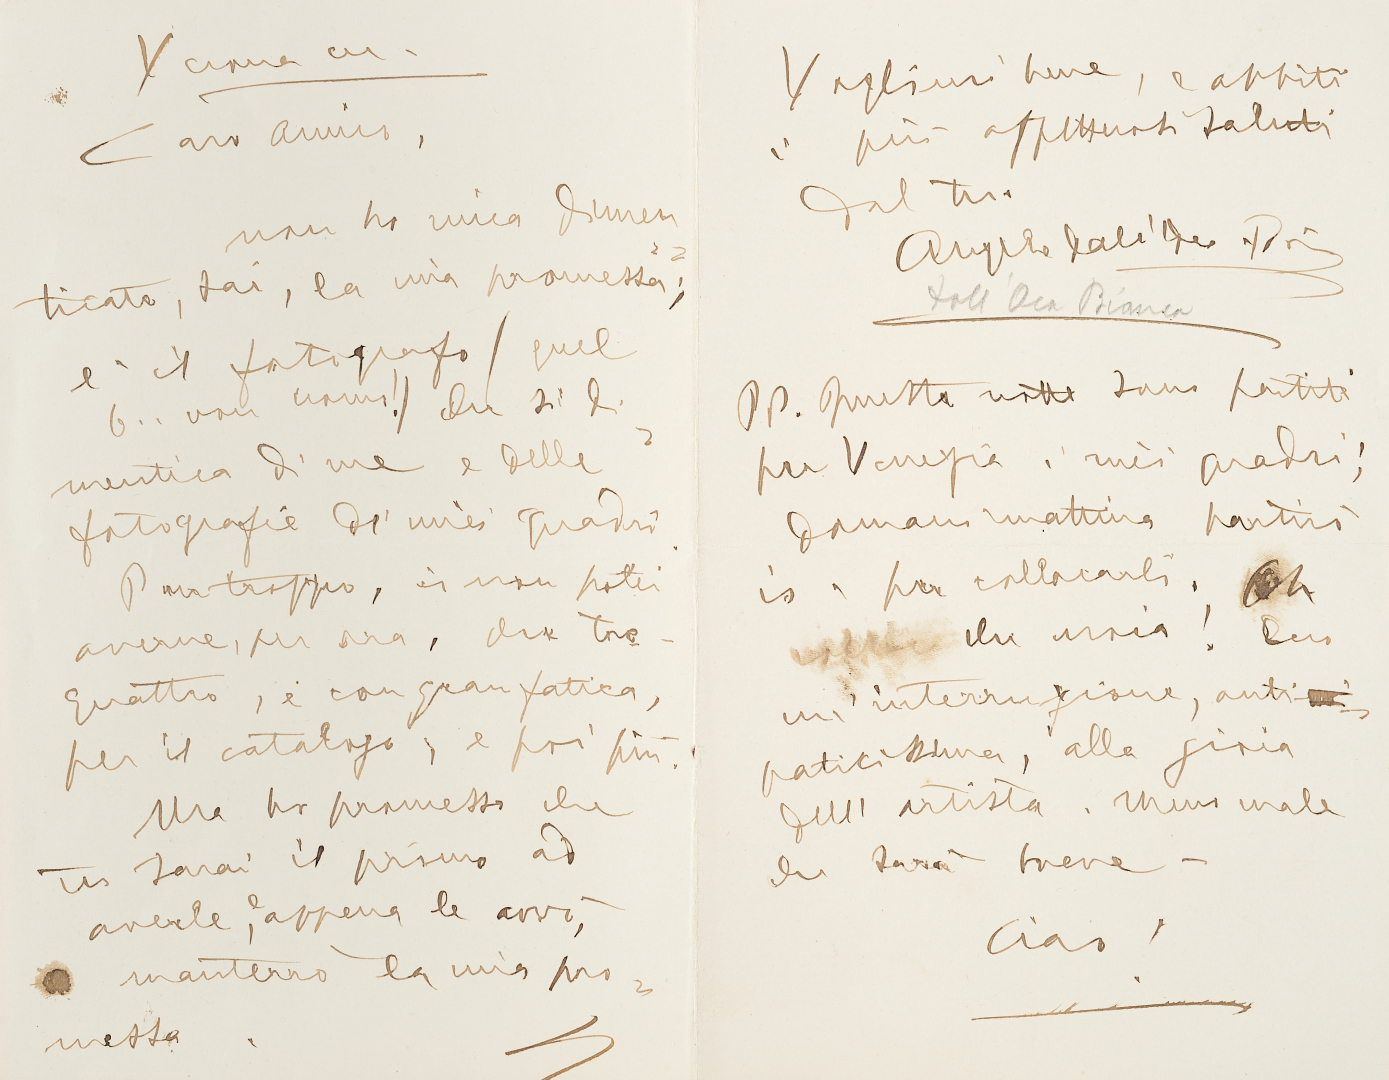 Verona
Caro Amico,
non ho mica dimen
ticato, sai, la mia promessa;
è il fotografo / quel
b.. non uomo!/ che si di=
mentica di me e delle
fotografie di miei quadri.
Purtroppo, io non potei
averne, per ora, che tre
quattro, e con gran fatica,
per il catalogo; e poi più.
Ma ho promesso che
tu sarai il primo ad
averle, e appena le avrò,
manterrò la mia pro=
messa.
Vogliimi bene, e abbiti
i più affettuosi saluti
dal tuo
Angelo Dall'Oca Bi
Dall'Oca Bianca
PP. Questa notte sono partiti
per Venezia i miei quadri;
domani mattina partirò
io per collocarli. Oh
che noia! Ecco
un'interruzione, anti=
paticissima, alla gioia
dell'artista. Meno male
che sarà breve -
Ciao!